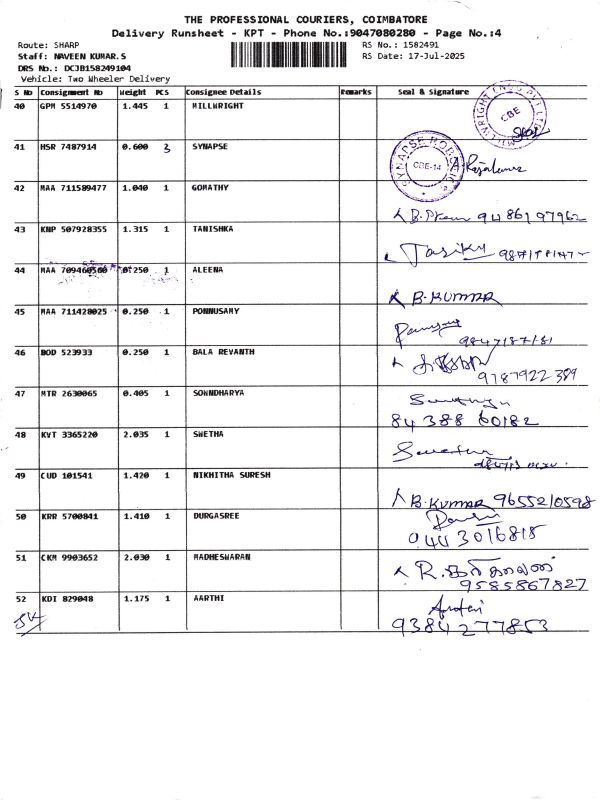 THE PROFESSIONAL COURIERS, COIMBATORE
Delivery Runsheet - KPT - Phone No.:9047080280 - Page No.:4
Route: SHARP
RS No.: 1582491
Staff: NAVEEN KUMAR.S
RS Date: 17-Jul-2025
DRS No.: DCJB158249104
Vehicle: Two Wheeler Delivery
S No Consignment No Weight PCS Consignee Details Remarks Seal & Signature
40 GPM 5514970 1.445 1 MILLWRIGHT
CBE
41 HSR 7487914 0.600 2 SYNAPSE
3
CBE-14
42 MAA 711589477 1.040 1 GOMATHY
9486197962
43 KNP 507928355 1.315 1 TANISHKA
44 MAA 709460560 0.250 1 ALEENA
B.KUMAR
45 MAA 711428025 0.250 1 PONNUSAMY
46 BOD 523933 0.250 1 BALA REVANTH
9787922389
47 MTR 2630065 0.405 1 SOWNDHARYA
84388 60182
48 KVT 3365220 2.035 1 SWETHA
49 CUD 101541 1.420 1 NIKHITHA SURESH
B.KUMAR 9655210598
50 KRR 5700841 1.410 1 DURGASREE
9443016818
51 CKM 9903652 2.030 1 MADHESWARAN
9585867827
52 KDI 829048 1.175 1 AARTHI
9384277853